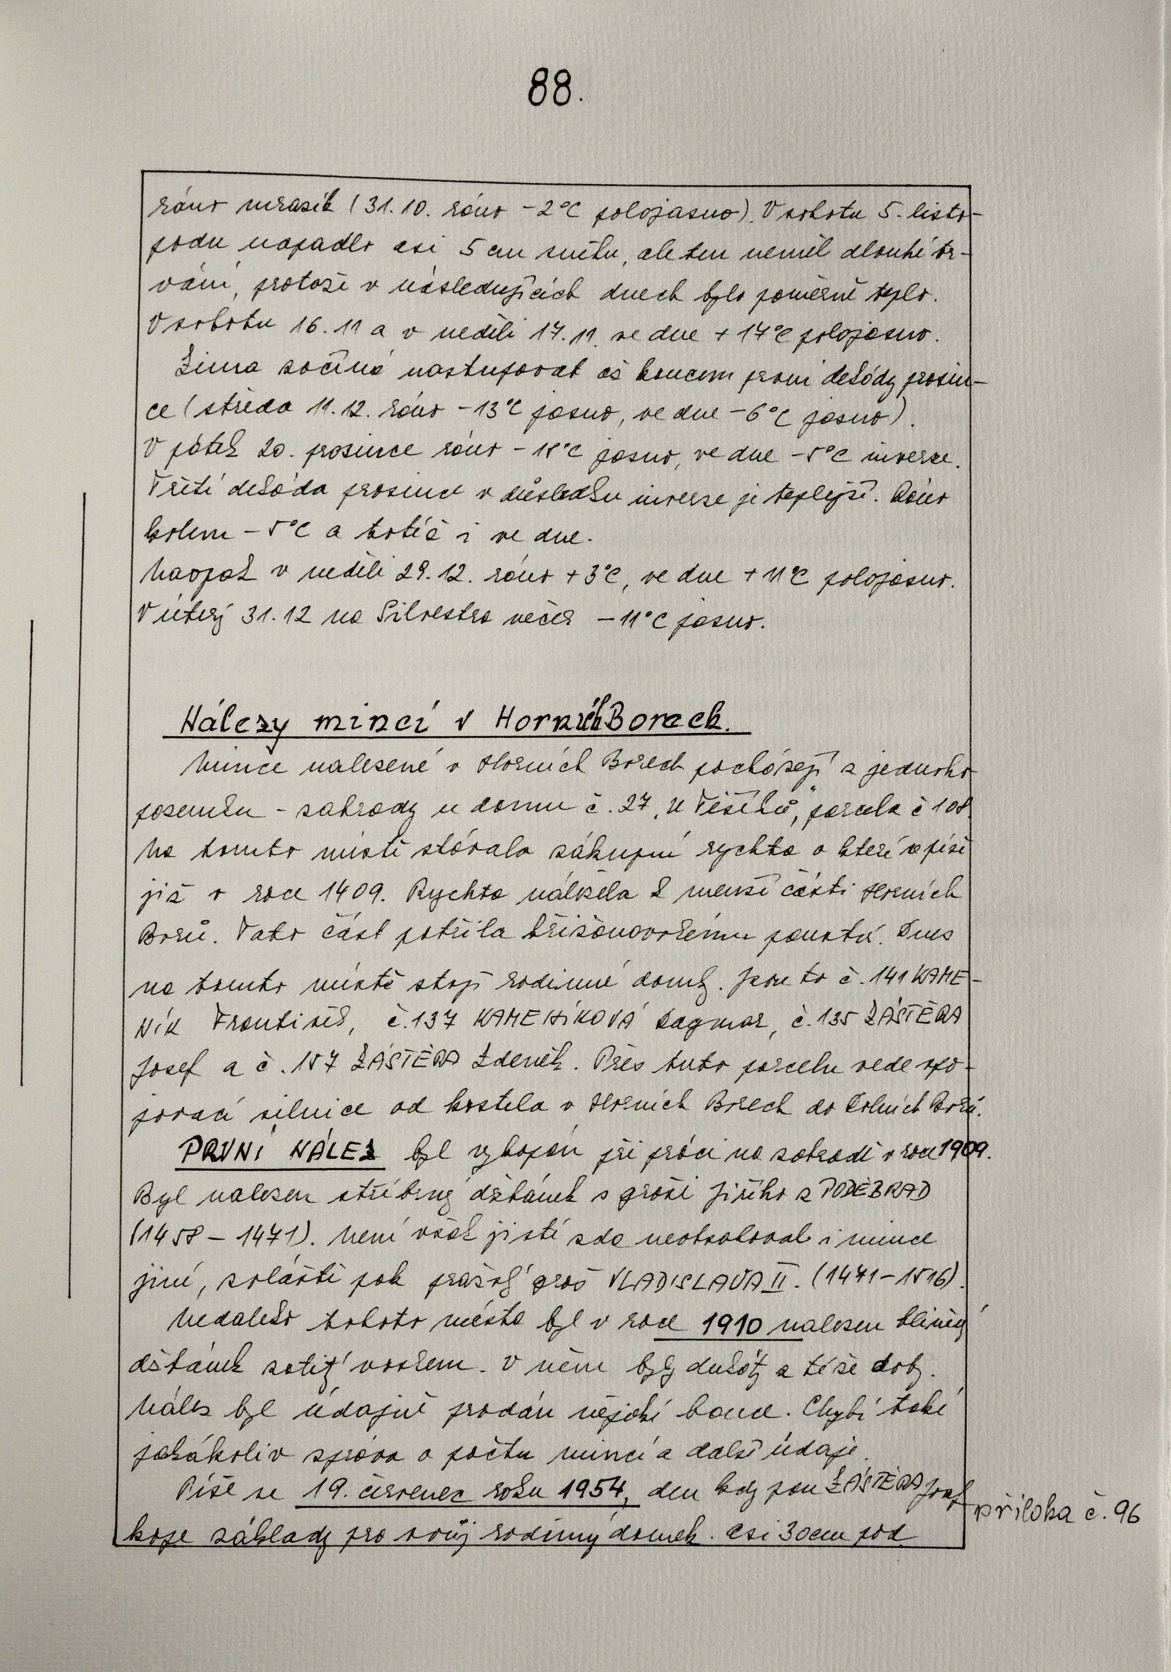 88.
ráno mrazík (31.10. ráno -2°C polojasno). V sobotu 5. listo-
padu napadlo asi 5 cm sněhu, ale ten neměl dlouhé tr-
vání, protože v následujících dnech bylo poměrně teplo.
V sobotu 16.11 a v neděli 17.11. ve dne +17°C polojasno.
Zima začíná nastupovat až koncem první dekády prosin-
ce (středa 11.12. ráno -13°C jasno, ve dne -6°C jasno).
V pátek 20. prosince ráno -18°C jasno, ve dne -5°C inverze.
Třetí dekáda prosince v důsledku inverze je teplejší. Ráno
kolem -5°C a totéž i ve dne.
Naopak v neděli 29.12. ráno +3°C, ve dne +11°C polojasno.
V úterý 31.12 na Silvestra večer -11°C jasno.
Nálezy mincí v Horních Borech.
Mince nalezené v Horních Borech pocházejí z jednoho
pozemku - zahrady u domu č. 27 „U Těšíků", parcela č 108.
Na tomto místě stávala zákupní rychta o které se píše
již v roce 1409. Rychta náležela k menší části Horních
Borů. Tato část patřila křižanovskému panství. Dnes
na tomto místě stojí rodinné domky. Jsou to č. 141 KAME-
NÍK František, č. 137 KAMENÍKOVÁ Dagmar, č. 135 ZÁŠTĚRA
Josef a č. 157 ZÁŠTĚRA Zdeněk. Přes tuto parcelu vede spo-
jovací silnice od kostela v Horních Borech do Dolních Borů.
PRVNÍ NÁLEZ byl vykopán při práci na zahradě v roce 1909.
Byl nalezen stříbrný džbánek s groši Jiřího z PODĚBRAD
(1458 - 1471). Není však jisté zda neobsahoval i mince
jiné, zvláště pak pražský groš VLADISLAVA II. (1471-1516).
Nedaleko tohoto místa byl v roce 1910 nalezen hliněný
džbánek zalitý voskem. V něm byly dukáty z téže doby.
Nález byl údajně prodán nějaké bance. Chybí také
jakákoliv zpráva o počtu mincí a další údaje.
Píše se 19. červenec roku 1954, den kdy pan ZÁŠTĚRA Josef
kope základy pro svůj rodinný domek. Asi 30cm pod
příloha č. 96